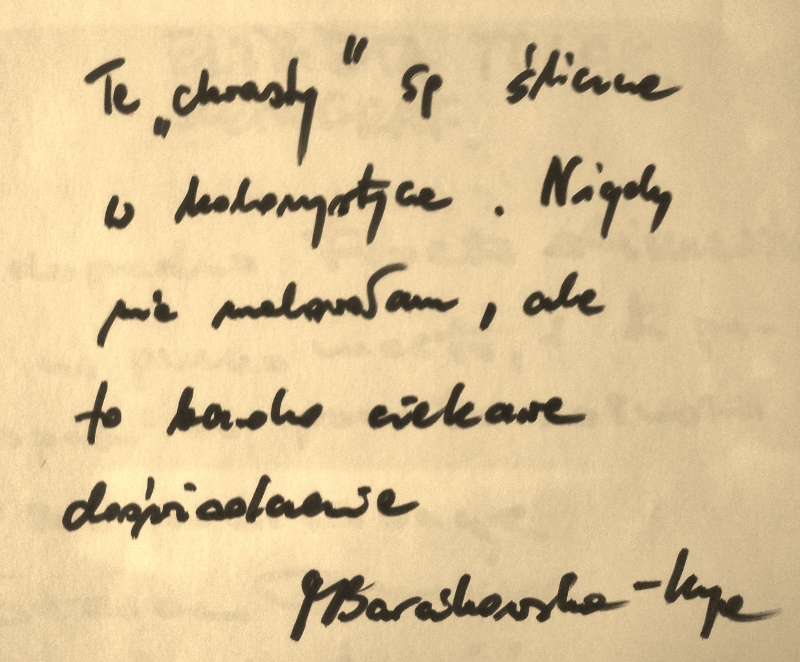 Te „chwasty" są śliczne
w kolorystyce. Nigdy
nie malowałam, ale
to bardzo ciekawe
doświadczenie